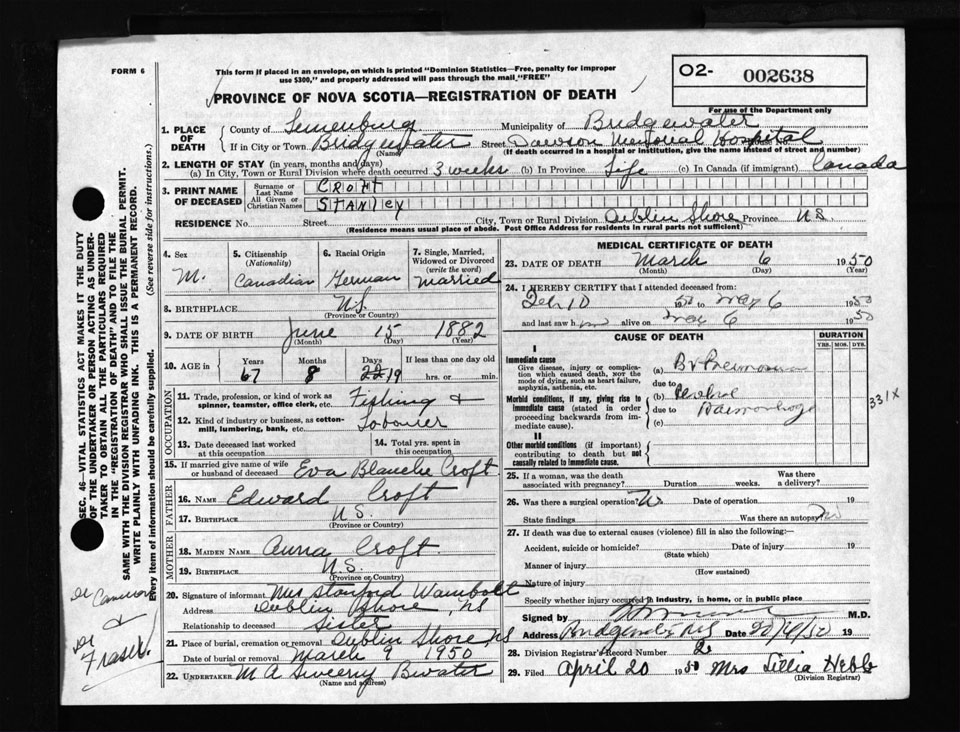 FORM 6
This form if placed in an envelope, on which is printed "Dominion Statistics—Free, penalty for improper
use $300," and properly addressed will pass through the mail "FREE"
O2- 002638
For use of the Department only
PROVINCE OF NOVA SCOTIA—REGISTRATION OF DEATH
1. PLACE OF DEATH
County of Lunenburg Municipality of Bridgewater
If in City or Town Bridgewater Street Dawson Memorial Hospital House No.
(Name) (If death occurred in a hospital or institution, give the name instead of street and number)
2. LENGTH OF STAY (in years, months and days)
(a) In City, Town or Rural Division where death occurred 3 weeks (b) In Province Life (c) In Canada (if immigrant) Canada
3. PRINT NAME OF DECEASED
Surname or Last Name CROFT
All Given or Christian Names STANLEY
RESIDENCE No. Street City, Town or Rural Division Dublin Shore Province N.S
(Residence means usual place of abode. Post Office Address for residents in rural parts not sufficient)
4. Sex M.
5. Citizenship (Nationality) Canadian
6. Racial Origin German
7. Single, Married, Widowed or Divorced (write the word) married
8. BIRTHPLACE N.S
(Province or Country)
9. DATE OF BIRTH June 15 1882
(Month) (Day) (Year)
10. AGE in Years 67 Months 8 Days 22 19 If less than one day old hrs. or min.
OCCUPATION
11. Trade, profession, or kind of work as spinner, teamster, office clerk, etc. Fishing &
12. Kind of industry or business, as cotton-mill, lumbering, bank, etc. Labourer
13. Date deceased last worked at this occupation
14. Total yrs. spent in this occupation
15. If married give name of wife or husband of deceased Eva Blanche Croft
FATHER
16. NAME Edward Croft
17. BIRTHPLACE N.S.
(Province or Country)
MOTHER
18. MAIDEN NAME Anna Croft
19. BIRTHPLACE N.S.
(Province or Country)
20. Signature of informant Mrs Stanford Wambolt
Address Dublin Shore, NS
Relationship to deceased Sister
21. Place of burial, cremation or removal Dublin Shore NS
Date of burial or removal March 9 1950
22. UNDERTAKER M A Sweeny Bwater
(Name and address)
MEDICAL CERTIFICATE OF DEATH
23. DATE OF DEATH March 6 1950
(Month) (Day) (Year)
24. I HEREBY CERTIFY that I attended deceased from:
Feb 10 1950 to Mar 6 1950
and last saw him alive on Mar 6 1950
CAUSE OF DEATH
DURATION
YRS. MOS. DYS.
I
Immediate cause
Give disease, injury or complication which caused death, not the mode of dying, such as heart failure, asphyxia, asthenia, etc.
(a) Br Pneumonia
due to
Morbid conditions, if any, giving rise to immediate cause (stated in order proceeding backwards from immediate cause).
(b) Cerebral
due to Haemorrhage
(c)
331X
II
Other morbid conditions (if important) contributing to death but not causally related to immediate cause.
25. If a woman, was the death associated with pregnancy? Duration weeks. Was there a delivery?
26. Was there a surgical operation No Date of operation 19
State findings Was there an autopsy? No
27. If death was due to external causes (violence) fill in also the following:—
Accident, suicide or homicide? Date of injury 19
(State which)
Manner of injury
(How sustained)
Nature of injury
Specify whether injury occurred in industry, in home, or in public place
Signed M.D.
Address Bridgewater NS Date 20/4/50 19
28. Division Registrar's Record Number
29. Filed April 20 1950 Mrs Lillia Hebb
(Division Registrar)
SEC. 46—VITAL STATISTICS ACT MAKES IT THE DUTY
OF THE UNDERTAKER OR PERSON ACTING AS UNDER-
TAKER TO OBTAIN ALL THE PARTICULARS REQUIRED
IN THE "REGISTRATION OF DEATH" AND TO FILE THE
SAME WITH THE DIVISION REGISTRAR WHO SHALL ISSUE THE BURIAL PERMIT.
WRITE PLAINLY WITH UNFADING INK. THIS IS A PERMANENT RECORD.
Every item of information should be carefully supplied. (See reverse side for instructions.)
Dr Cameron
&
Dr Fraser.